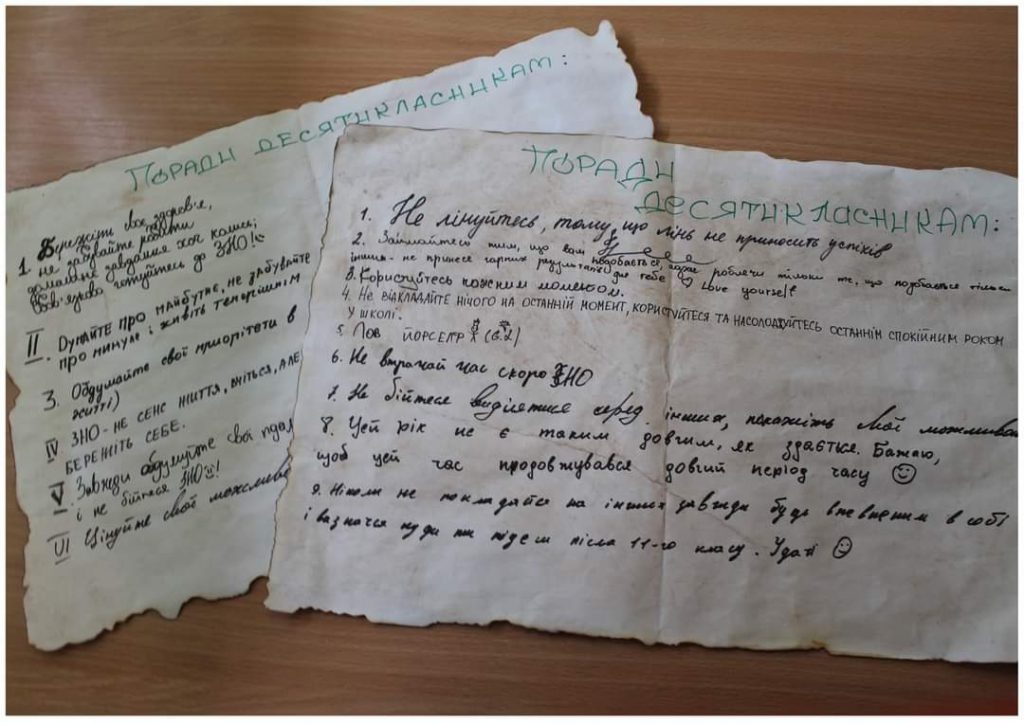 ПОРАДИ ДЕСЯТИКЛАСНИКАМ:
1. Бережіть своє здоров'я,
не забувайте робити
домашнє завдання хоч колись;
обов'язково готуйтесь до ЗНО!
II. Думайте про майбутнє, не забувайте
про минуле і живіть теперішнім
3. Обдумайте свої приорітети в
житті)
IV ЗНО - НЕ СЕНС ЖИТТЯ, вчіться, АЛЕ
БЕРЕЖІТЬ СЕБЕ.
V Завжди обдумуйте свої
і не бійтеся ЗНО!
VI Цінуйте свої
ПОРАДИ
ДЕСЯТИКЛАСНИКАМ:
1. Не лінуйтесь, тому, що лінь не приносить успіхів
2. Займайтеся тим, що вам подобається, роблячи тільки те, що подобається тільки
іншим - не принесе гарних результатів для тебе ♡ Love yourself
3. Користуйтесь кожним моментом.
4. НЕ ВІДКЛАДАЙТЕ НІЧОГО НА ОСТАННІЙ МОМЕНТ, КОРИСТУЙТЕСЯ ТА НАСОЛОДЖУЙТЕСЬ ОСТАННІМ СПОКІЙНИМ РОКОМ
У ШКОЛІ.
5. Лов йорселр
6. Не втрачай час скоро ЗНО
7. Не бійтеся виділятися серед інших, покажіть свої
8. Цей рік не є таким довгим, як здається. Бажаю,
щоб цей час продовжувався довгий період часу ☺
9. Ніколи не покладайся на інших завжди будь впевненим в собі
і визначся куди ти підеш після 11-го класу. Удачі ☺